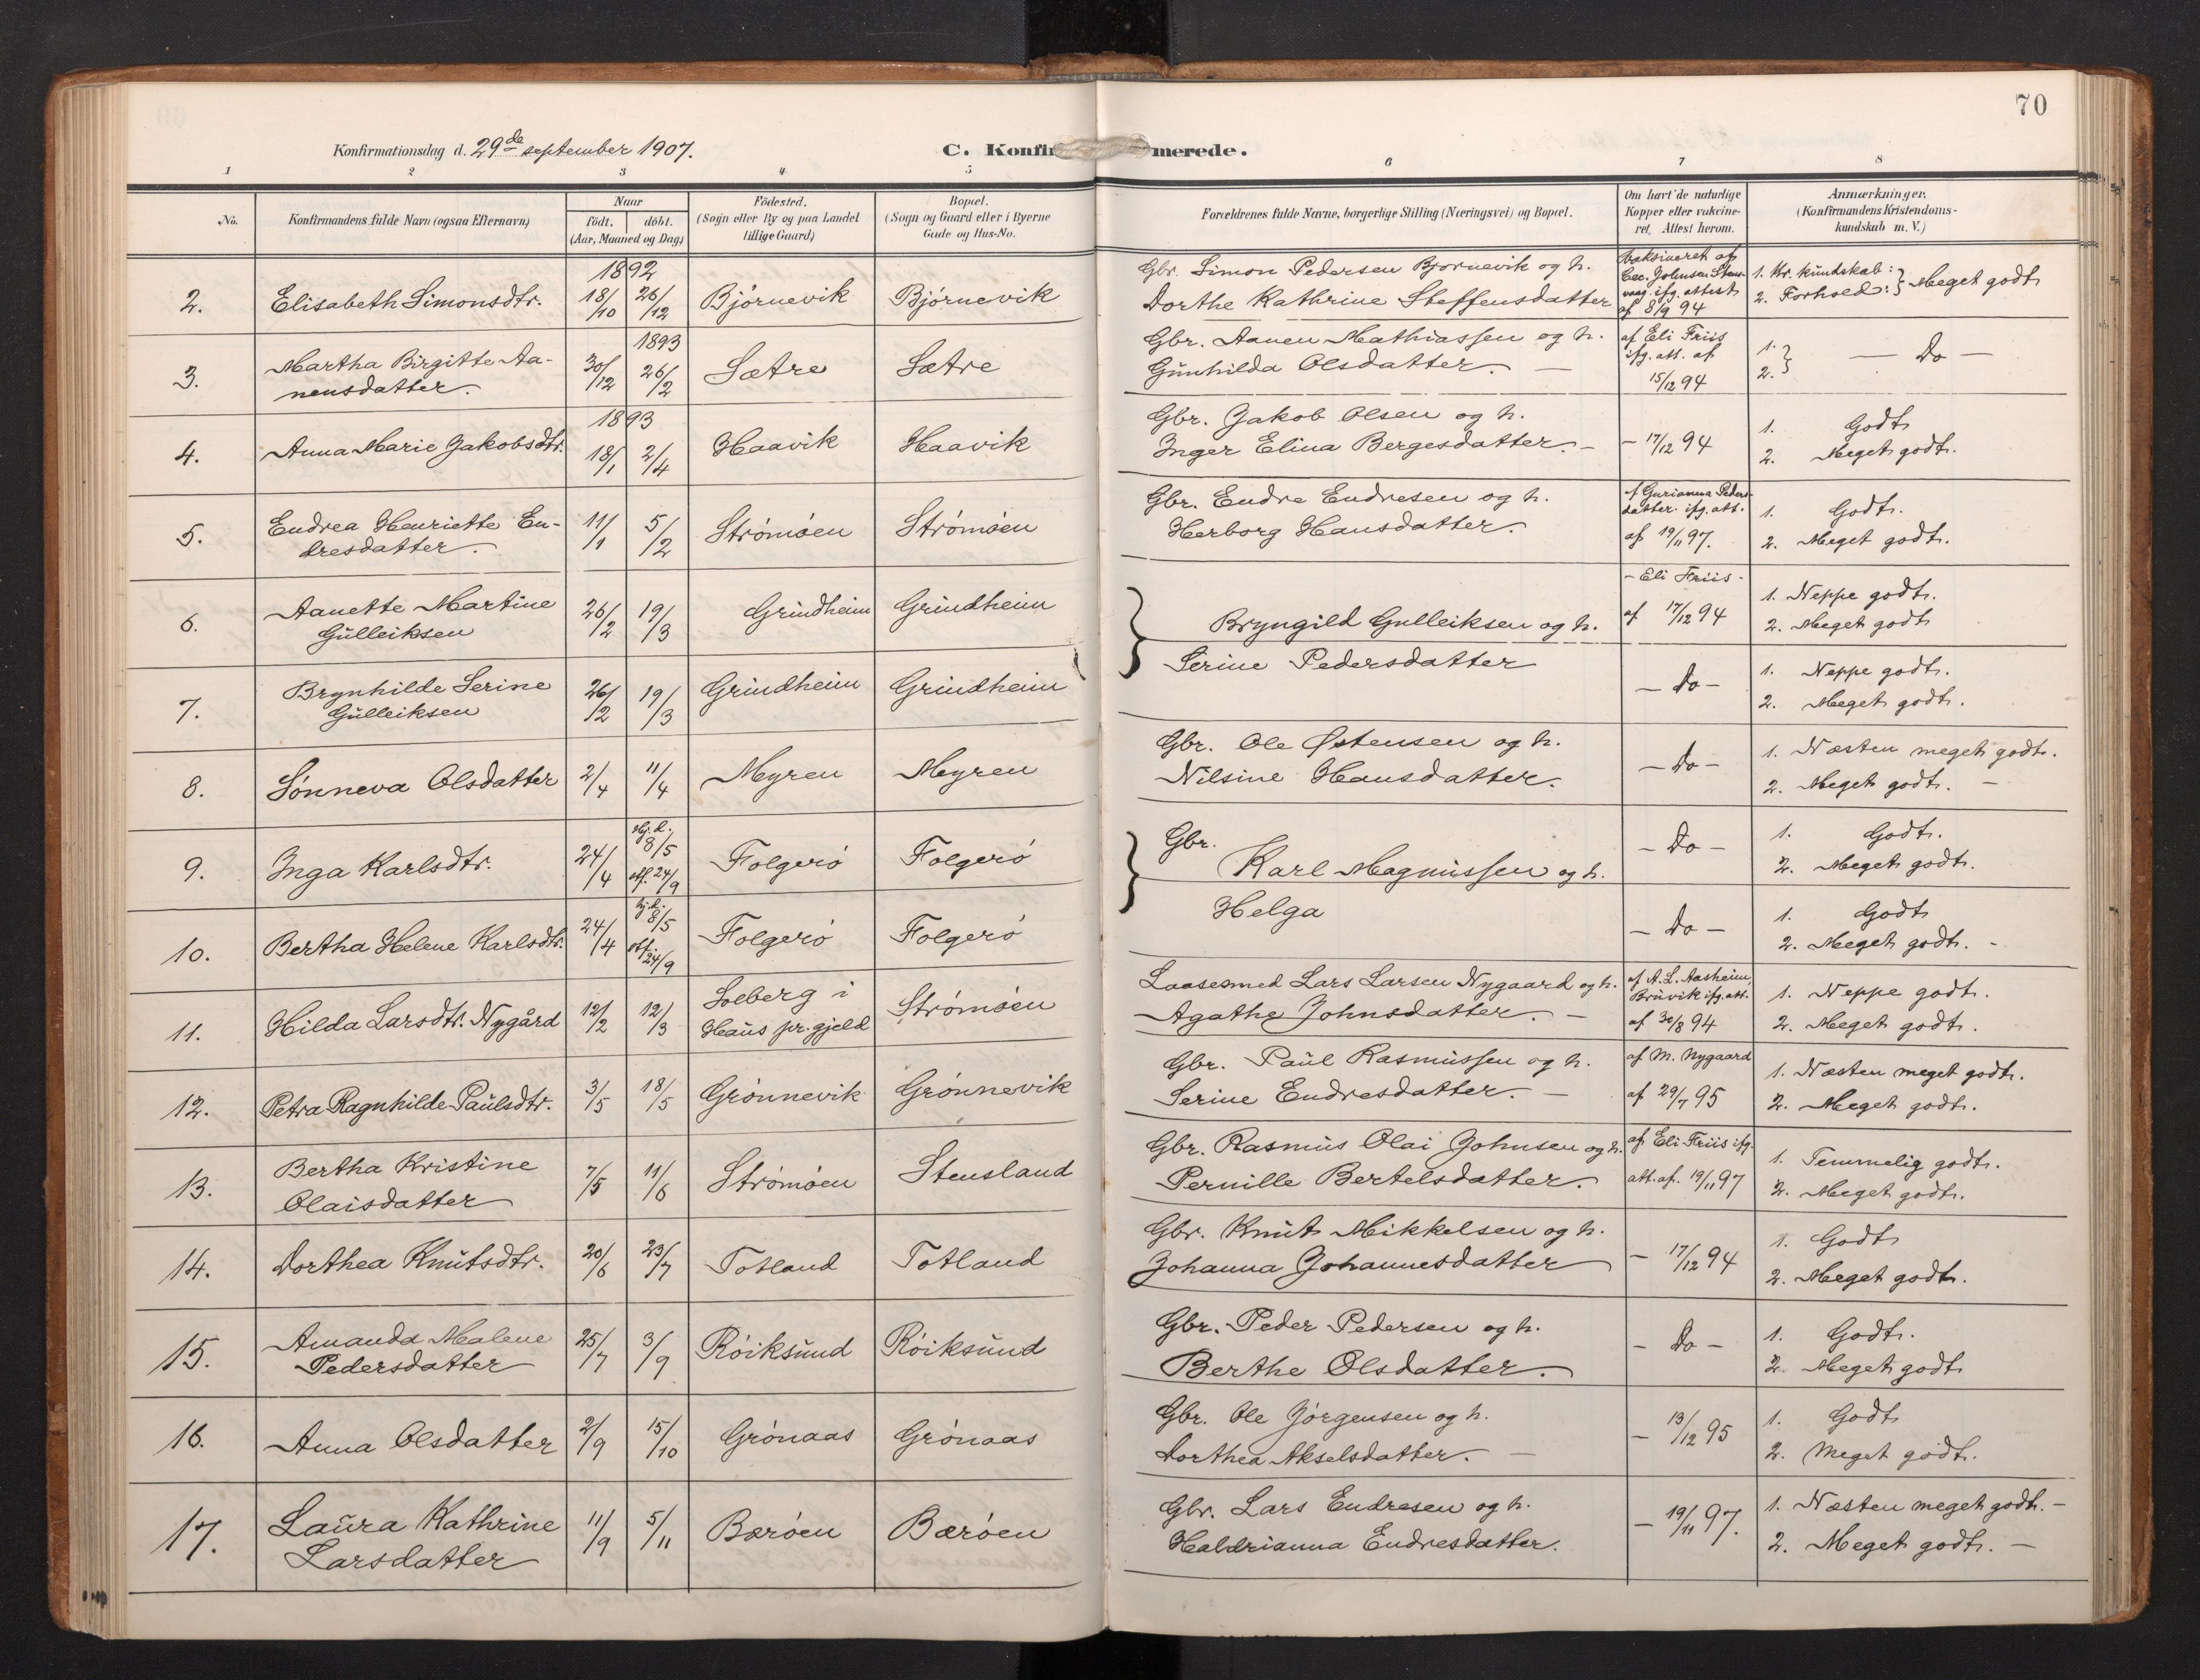 70
Konfirmationsdag d. 29de september 1907.
C. Konfir merede.
1 2 3 4 5 6 7 8
No.
Konfirmandens fulde Navn (ogsaa Efternavn)
Naar
födt. döbt.
(Aar, Maaned og Dag)
Födested.
(Sogn eller By og paa Landet
tillige Gaard)
Bopæl.
(Sogn og Gaard eller i Byerne
Gade og Hus-No.
Forældrenes fulde Navne, borgerlige Stilling (Næringsvei) og Bopæl.
Om havt de naturlige
Kopper eller vakcine-
ret. Attest herom.
Anmærkninger.
(Konfirmandens Kristendoms-
kundskab m. V.)
1892
2. Elisabeth Simonsdtr. 18/10 26/12 Bjørnevik Bjørnevik
Gbr. Simon Pedersen Bjornevik og h.
Dorthe Kathrine Steffensdatter
Vaksineret af
Cec. Johnsen Stens-
vaag ifg. attest
af 8/9 94
1. Kr. kundskab:
2. Forhold: } Meget godt
1893
3. Martha Birgitte Aa-
nensdatter. 30/12 26/2 Sætre Sætre
Gbr. Aanen Mathiassen og h.
Gunhilda Olsdatter. —
af Eli Friis
ifg. att. af
15/12 94
1.
2. } — Do —
1893
4. Anna Marie Jakobsdtr. 18/1 2/4 Haavik Haavik
Gbr. Jakob Olsen og h.
Inger Elina Bergesdatter. —
— 17/12 94
1. Godt
2. Meget godt.
5. Endrea Henriette En-
dresdatter. 11/1 5/2 Strømøen Strømøen
Gbr. Endre Endresen og h.
Herborg Hansdatter.
af Gurianna Peders-
datter ifg. att.
af 19/11 97.
1. Godt.
2. Meget godt.
6. Aanette Martine
Gulleiksen 26/2 19/3 Grindheim Grindheim
Bryngild Gulleiksen og h.
Serine Pedersdatter
— Eli Friis —
af 17/12 94
1. Neppe godt.
2. Meget godt
7. Brynhilde Serine
Gulleiksen 26/2 19/3 Grindheim Grindheim
— Do —
1. Neppe godt.
2. Meget godt.
8. Sønneva Olsdatter 2/4 11/4 Myren Myren
Gbr. Ole Østensen og h.
Nilsine Hansdatter.
— Do —
1. Næsten meget godt.
2. Meget godt. —
9. Inga Karlsdtr. 24/4 hj. d. 8/5 stf. 24/9 Folgerø Folgerø
Gbr.
Karl Magnussen og h.
Helga
— Do —
1. Godt.
2. Meget godt.
10. Bertha Helene Karlsdtr. 24/4 hj. d. 8/5 stf. 24/9 Folgerø Folgerø
— Do —
1. Godt
2. Meget godt. —
11. Hilda Larsdtr. Nygård 12/2 12/3 Soeberg i
Haus pr.gjeld Strømøen
Laasesmed Lars Larsen Nygaard og h.
Agathe Johnsdatter. —
af A. L. Aasheim,
Bruvik ifg. att.
af 30/8 94
1. Neppe godt.
2. Meget godt.
12. Petra Ragnhilde Paulsdtr. 3/5 18/5 Grønnevik Grønnevik
Gbr. Paul Rasmussen og h.
Serine Endresdatter. —
af M. Nygaard
af 29/7 95
1. Næsten meget godt.
2. Meget godt.
13. Bertha Kristine
Olaisdatter 7/5 11/6 Strømøen Stensland
Gbr. Rasmus Olai Johnsen og h.
Pernille Bertelsdatter.
af Eli Friis ifg.
att. af. 19/11 97
1. Temmelig godt.
2. Meget godt.
14. Dorthea Knutsdtr. 20/6 23/7 Totland Totland
Gbr. Knut Mikkelsen og h.
Johanna Johannesdatter
— 17/12 94
1. Godt
2. Meget godt.
15. Amanda Malene
Pedersdatter 25/7 3/9 Røiksund Røiksund
Gbr. Peder Pedersen og h.
Berthe Olsdatter.
— Do —
1. Godt.
2. Meget godt
16. Anna Olsdatter 2/9 15/10 Grønaas Grønaas
Gbr. Ole Jørgensen og h.
Dorthea Akselsdatter. —
— 13/12 95
1. Godt
2. Meget godt.
17. Laura Kathrine
Larsdatter 11/9 5/11 Bærøen Bærøen
Gbr. Lars Endresen og h.
Haldrianna Endresdatter.
— 19/11 97.
1. Næsten meget godt. —
2. Meget godt. —